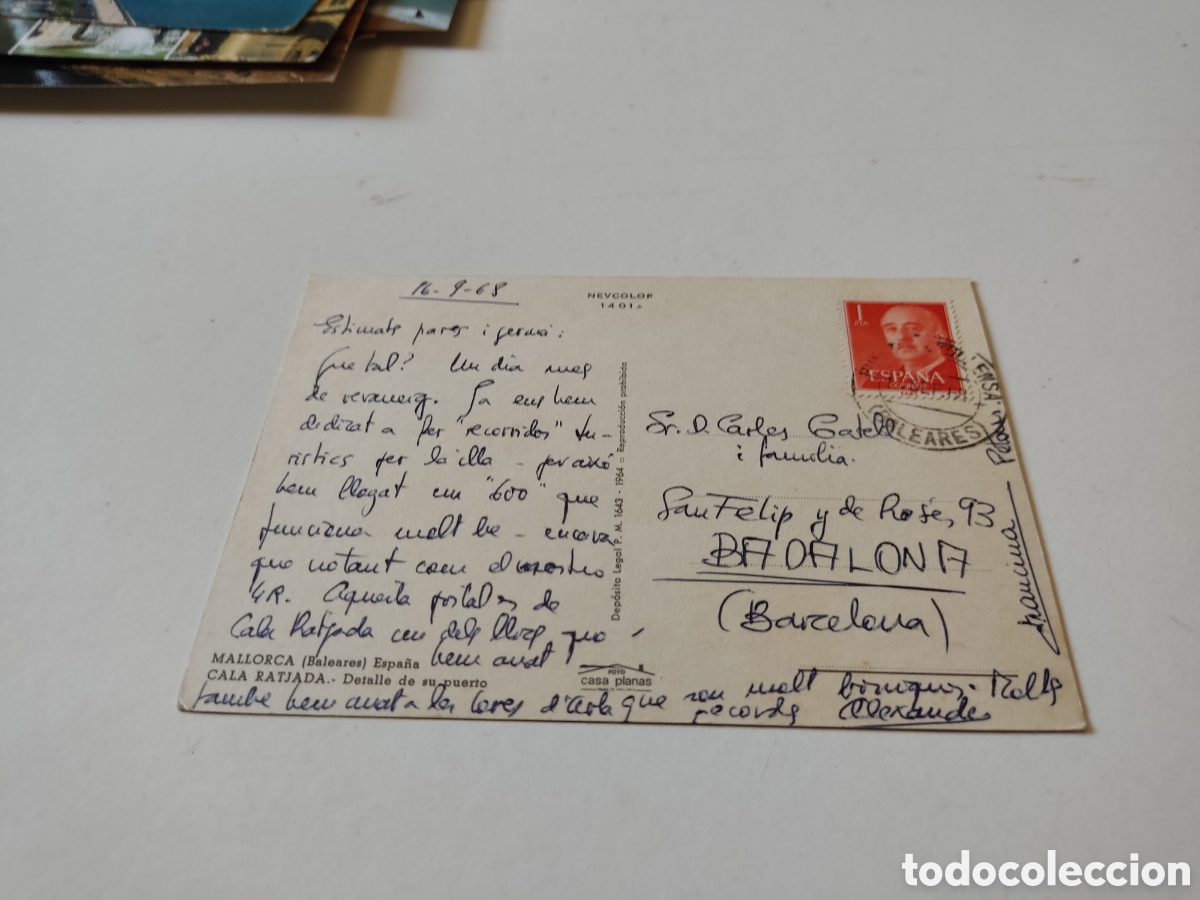 16-9-68
NEVCOLOR
1401 A
Estimats pares i germà:
Que tal? Un dia mes
de revaneig. Ja ens hem
dedicat a fer "recorridos" tu-
ristics per la illa - per això
hem llogat un "600" que
funciona molt be - encara
que notant com el nostro
4R. Aquesta postal es de
Cala Ratjada un dels llocs que
hem anat
MALLORCA (Baleares) España
CALA RATJADA.- Detalle de su puerto
també hem anat a les Coves d'Arta que son molt boniques. Molts
records Alexandre
Depósito Legal P. M. 1643 - 1964 = Reproducción prohibida
FOTO
casa planas
1
PTA
ESPAÑA
CORREOS
(BALEARES)
Sr. D. Carles Catell
i familia.
San Felip y de Rosés, 93
BADALONA
(Barcelona)
Francina
todocoleccion